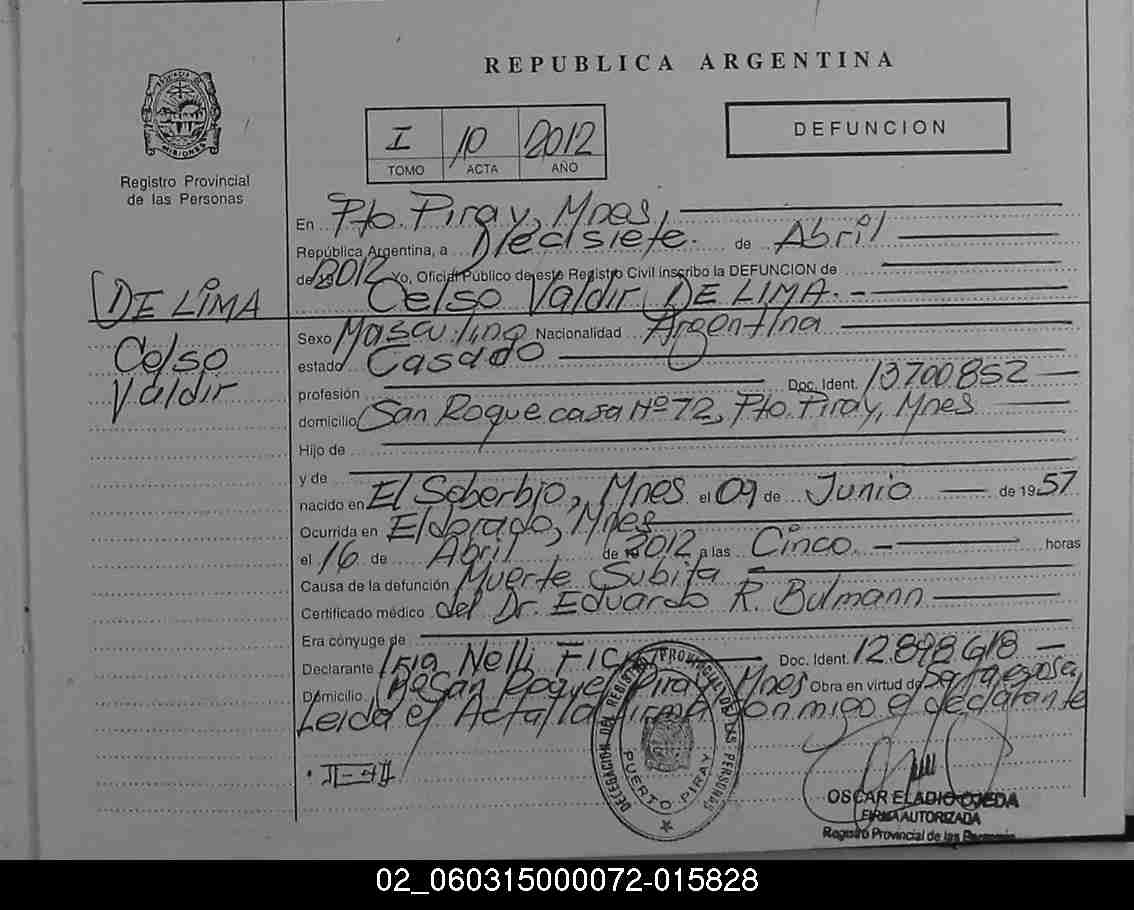 REPUBLICA ARGENTINA
I 10 2012
TOMO ACTA AÑO
DEFUNCION
PROVINCIA DE MISIONES
Registro Provincial
de las Personas
DE LIMA
Celso
Valdir
En Pto. Piray, Mnes,
República Argentina, a Diecisiete. de Abril
de 2012 Yo, Oficial Público de este Registro Civil inscribo la DEFUNCION de
Celso Valdir DE LIMA. -
Sexo Masculino Nacionalidad Argentina
estado Casado
profesión Doc. Ident. 13700852
domicilio San Roque casa Nº 72, Pto. Piray, Mnes
Hijo de
y de
nacido en El Soberbio, Mnes el 09 de Junio de 1957
Ocurrida en Eldorado, Mnes
el 16 de Abril de 2012 a las Cinco. - horas
Causa de la defunción Muerte Subita
Certificado médico del Dr. Eduardo R. Bulmann
Era cónyuge de
Declarante Nelli Doc. Ident. 12.898.618
Domicilio Bº San Roque Piray Mnes Obra en virtud de ser la esposa
Leida el Acta la firma conmigo el declarante
DELEGACION DEL REGISTRO PROVINCIAL DE LAS PERSONAS
PUERTO PIRAY
OSCAR ELADIO OJEDA
FIRMA AUTORIZADA
Registro Provincial de las Personas
02_060315000072-015828